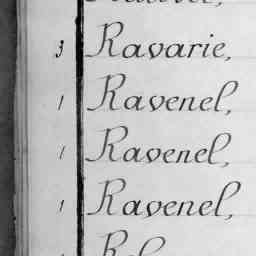 3 Ravarie,
1 Ravenel,
1 Ravenel,
1 Ravenel,